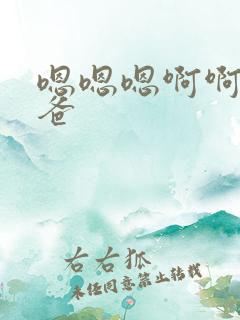 嗯嗯嗯啊啊
爸
右右狐
未经同意禁止转载